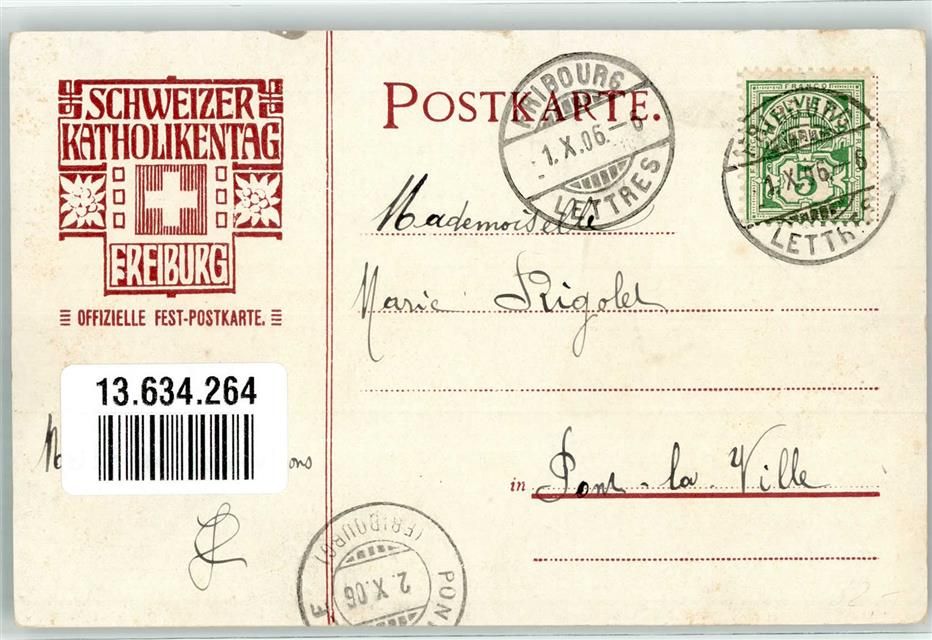 SCHWEIZER
KATHOLIKENTAG
FREIBURG
OFFIZIELLE FEST-POSTKARTE.
POSTKARTE.
FRIBOURG
1.X.06.-6
LETTRES
FRANCO
HELVETIA
5
1.X.06. 6
LETTR
Mademoiselle
Marie Rigolet
in Pont-la-Ville
13.634.264
ons
(FRIBOURG)
2.X.06
PON